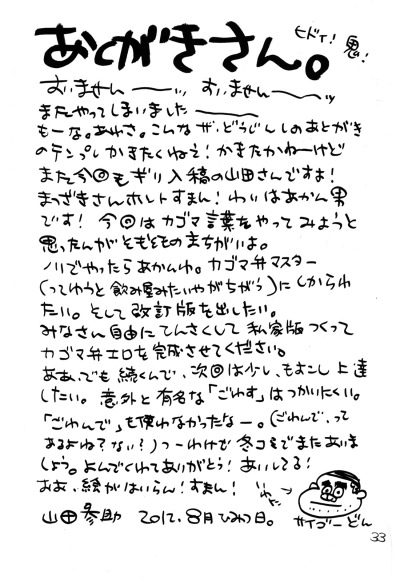 あとがきさん。
ヒドイ!鬼!
すいませんーーッ すいませんーーッ
またやってしまいましたーー
もーな。あれさ。こんなザ・どうじんしのあとがき
のテンプレかきたくねえ!かきたかねーけど
また今回もギリ入稿の山田さんですよ!
まつざきさんホントすまん!わしはあかん男
です!今回はカゴマ言葉をやってみようと
思ったんがそもそものまちがいよ。
ノリでやったらあかんわ。カゴマ弁マスター
(ってゆうと飲み屋みたいやがちがう)にしかられ
たい。そして改訂版を出したい。
みなさん自由にてんさくして私家版つくって
カゴマ弁エロを完成させてください。
ああ、でも続くんで、次回は少しもよこし上達
したい。意外と有名な「ごわす」はつかいにくい。
「ごわんで」も使わなかったなー。(ごわんで、って
あるよね?ない?)つーわけで冬コミでまたあいま
しょう。よんでくれてありがとう!あいしてる!
ああ、絵がはいらん!すまん!
山田参助 2012.8月ひみつ日。
サイゴーどん
33